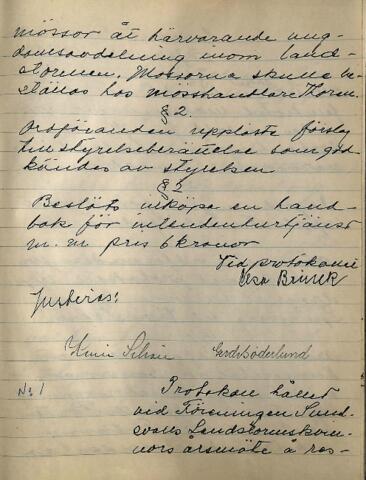 mössor åt härvarande ung-
domsavdelning inom land-
stormen. Mössorna skulle be-
ställas hos mösshandlare Thorén.
§ 2.
Ordföranden uppläste förslag
till styrelseberättelse som god-
kändes av styrelsen
§ 3
Beslöts inköpa en hand-
bok för intendenturtjänst
m. m pris 6 kronor
Vid protokollet
Elsa Brinck
Justeras:
Gerd Söderlund
No 1
Protokoll hållet
vid Föreningen Sund-
svalls Landstormskvin-
nors årsmöte å res-